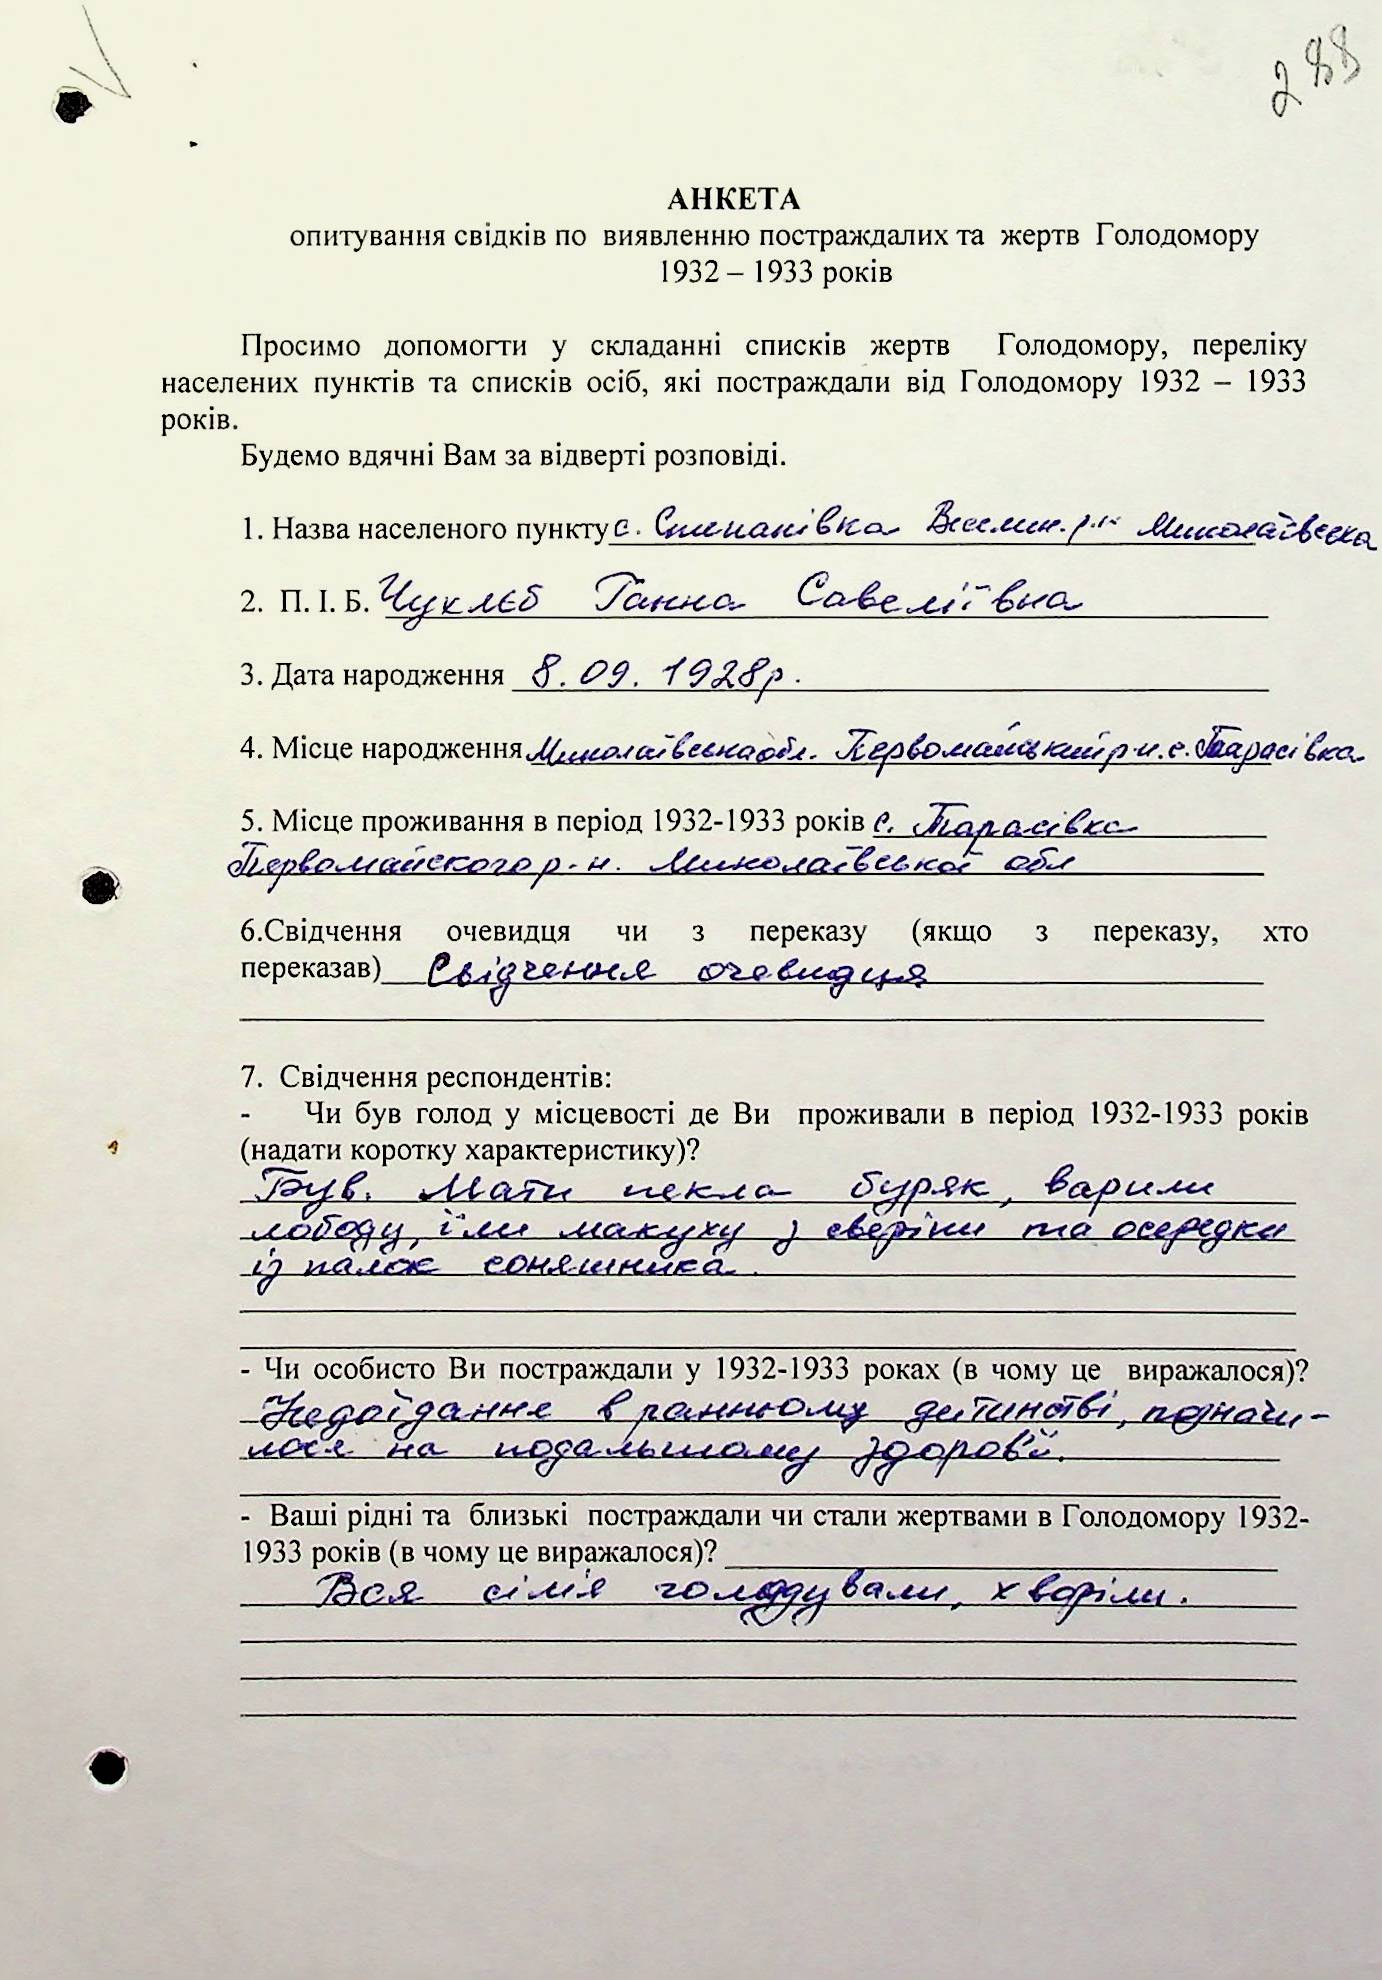 288
АНКЕТА
опитування свідків по виявленню постраждалих та жертв Голодомору
1932 – 1933 років
Просимо допомогти у складанні списків жертв Голодомору, переліку
населених пунктів та списків осіб, які постраждали від Голодомору 1932 – 1933
років.
Будемо вдячні Вам за відверті розповіді.
1. Назва населеного пункту с. Степанівка Веселин. р-н Миколаївська
2. П. І. Б. Чуклєб Ганна Савеліївна
3. Дата народження 8.09.1928р.
4. Місце народження Миколаївська обл. Первомайський р-н. с. Тарасівка
5. Місце проживання в період 1932-1933 років с. Тарасівка
Первомайського р-н. Миколаївської обл
6.Свідчення очевидця чи з переказу (якщо з переказу, хто
переказав) Свідчення очевидця
7. Свідчення респондентів:
- Чи був голод у місцевості де Ви проживали в період 1932-1933 років
(надати коротку характеристику)?
Був. Мати пекла буряк, варили
лободу, їли макуху з сверіпи та осередки
із палок соняшника.
- Чи особисто Ви постраждали у 1932-1933 роках (в чому це виражалося)?
Недоїдання в ранньому дитинстві, позначи-
лося на подальшому здоров'ї.
- Ваші рідні та близькі постраждали чи стали жертвами в Голодомору 1932-
1933 років (в чому це виражалося)?
Вся сім'я голодували, хворіли.